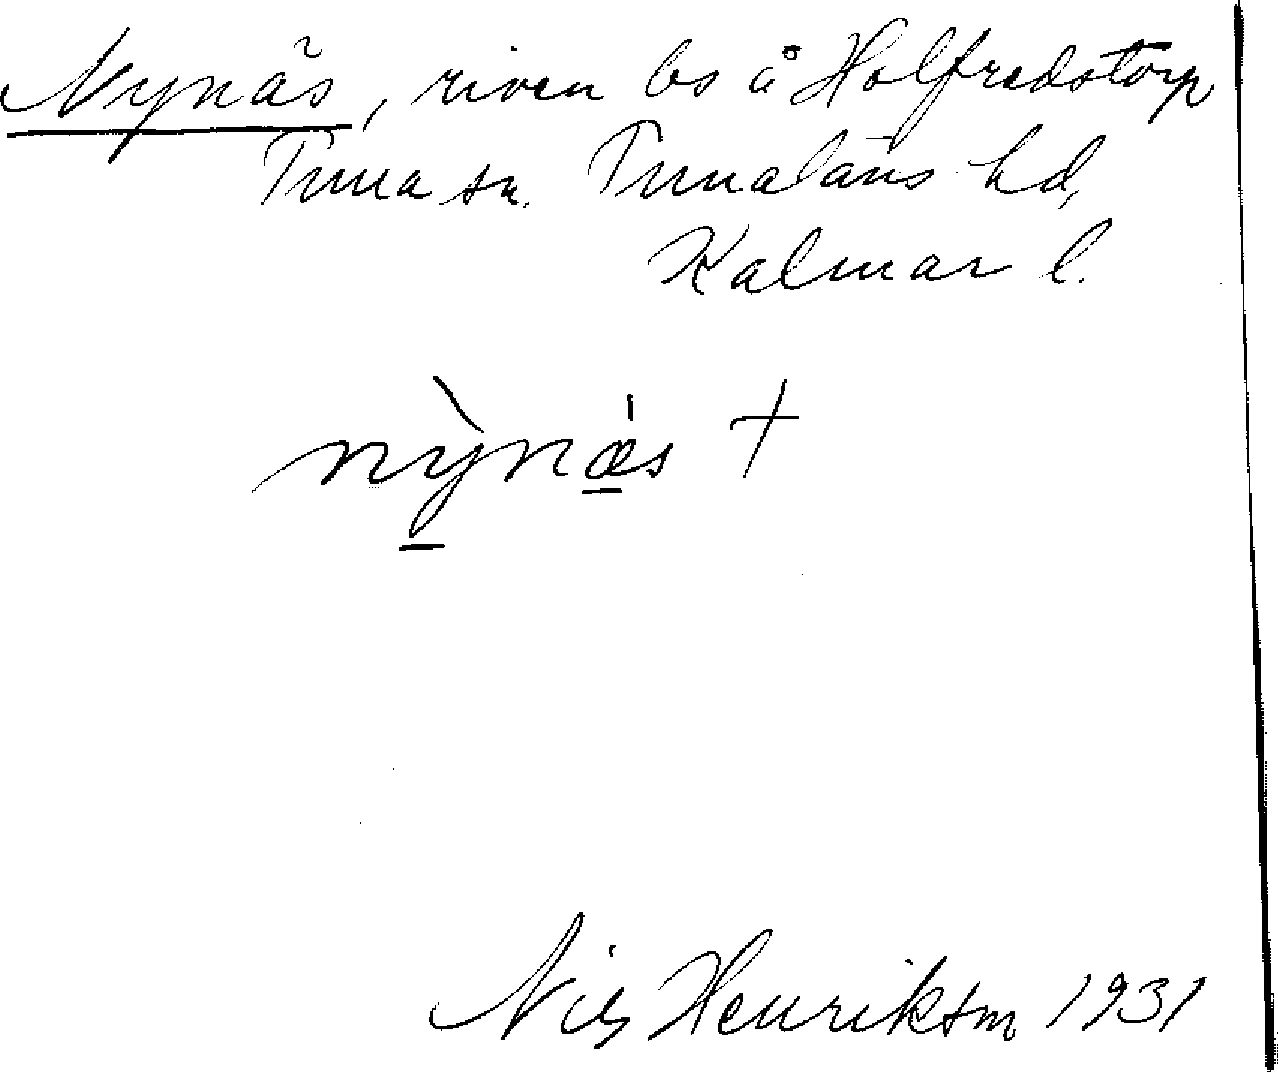 Nynäs, riven bs å Holfredstorp
Tuna sn. Tunaläns hd,
Kalmar l.
nỳnæ̀s +
Nils Henriksson 1931